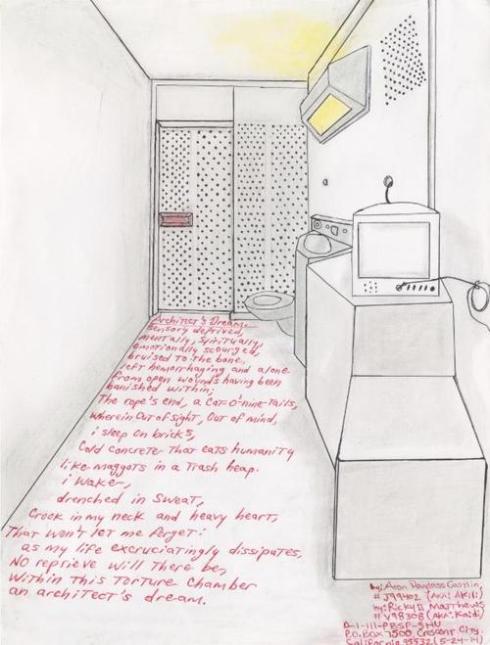 Architect's Dream:
Sensory deprived,
mentally, spiritually,
emotionally scourged,
bruised to the bone,
left hemorrhaging and alone
from open wounds having been
banished within;
The rope's end, a Cat-O'-nine-Tails,
wherein Out of sight, Out of mind,
i sleep on bricks,
Cold concrete that eats humanity
like maggots in a Trash heap.
i Waker,
drenched in Sweat,
Crock in my neck and heavy heart,
That won't let me forget:
as my life excruciatingly dissipates,
NO reprieve will There be,
Within This Torture Chamber
an architect's dream.
by:
# J99402 (AKA: Akili)
by: Ricky Matthews
# V98308 (AKA: Kaidi)
D-1-111-PBSP-SHU
P.O. Box 7500 Crescent City,
California 95532 (5-24-14)